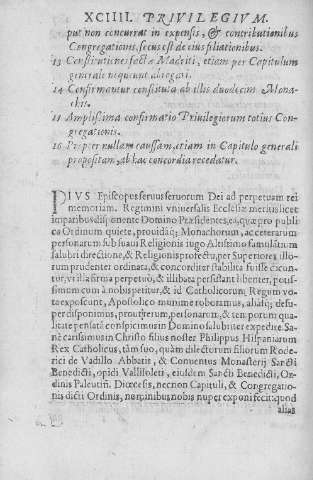 XCIIII. PRIVILEGIVM.
put non concurrat in expensis, & contributionibus
Congregationis, secus est de eius filiationibus.
13 Constitutiones factæ Madriti, etiam per Capitulum
generale nequeunt abrogari.
14 Confirmantur constituta ab illis duodecim Mona-
chis.
15 Amplissima confirmatio Priuilegiorum totius Con-
gregationis.
16 Propter nullam caussam, etiam in Capitulo generali
propositam, ab hac concordia recedatur.
PIVS Episcopus seruus seruorum Dei ad perpetuam rei
memoriam. Regimini vniuersalis Ecclesiæ meritis licet
imparibus disponente Domino Præsidentes, ea, quæ pro publi
ca Ordinum quiete, prouidaq; Monachorum, ac cæterarum
personarum sub suaui Religionis iugo Altissimo famulātium
salubri directione, & Religionis profectu, per Superiores illo-
rum prudenter ordinata, & concorditer stabilita fuisse dicun-
tur, vt illa firma perpetuò, & illibata persistant libenter, potis-
simùm cùm à nobis petitur, & id Catholicorum Regum vo-
ta exposcunt, Apostolico munime roboramus, aliàsq; desu-
per disponimus, prout rerum, personarum, & temporum qua-
litate pensata conspicimus in Domino salubriter expedire. Sa-
nè carissimus in Christo filius noster Philippus Hispaniarum
Rex Catholicus, tàm suo, quàm dilectorum filiorum Rode-
rici de Vadillo Abbatis, & Conuentus Monasterij Sancti
Benedicti, opidi Vallisoleti, eiusdem Sancti Benedicti, Or-
dinis Palentin. Diœcesis, necnon Capituli, & Congregatio-
nis dicti Ordinis, nominibus nobis nuper exponi fecit: quod
alias